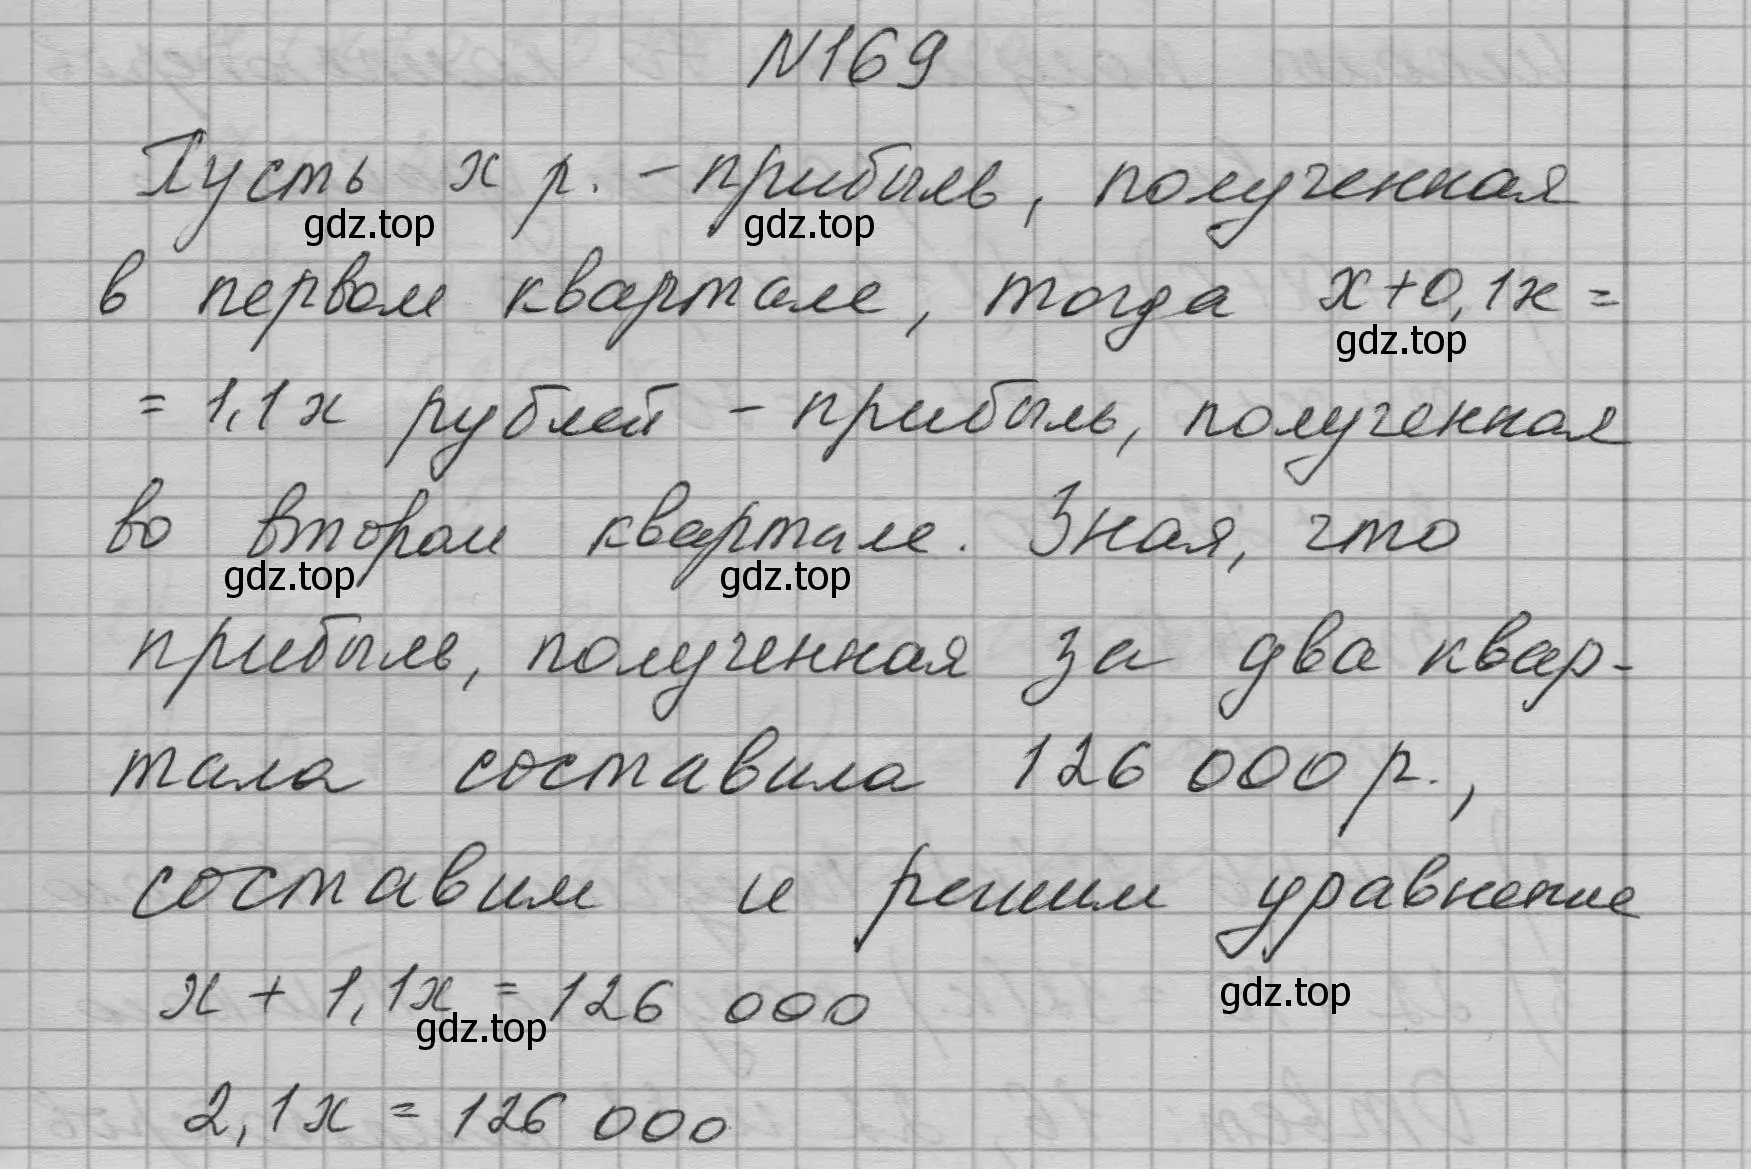 N169
Пусть x р. – прибыль, полученная
gdz.top gdz.top
в первом квартале, тогда x+0,1x =
gdz.top
= 1,1x рублей – прибыль, полученная
во втором квартале. Зная, что
gdz.top gdz.top
прибыль, полученная за два квар-
тала составила 126 000 р.,
составим и решим уравнение
gdz.top
x + 1,1x = 126 000
gdz.top
2,1x = 126 000